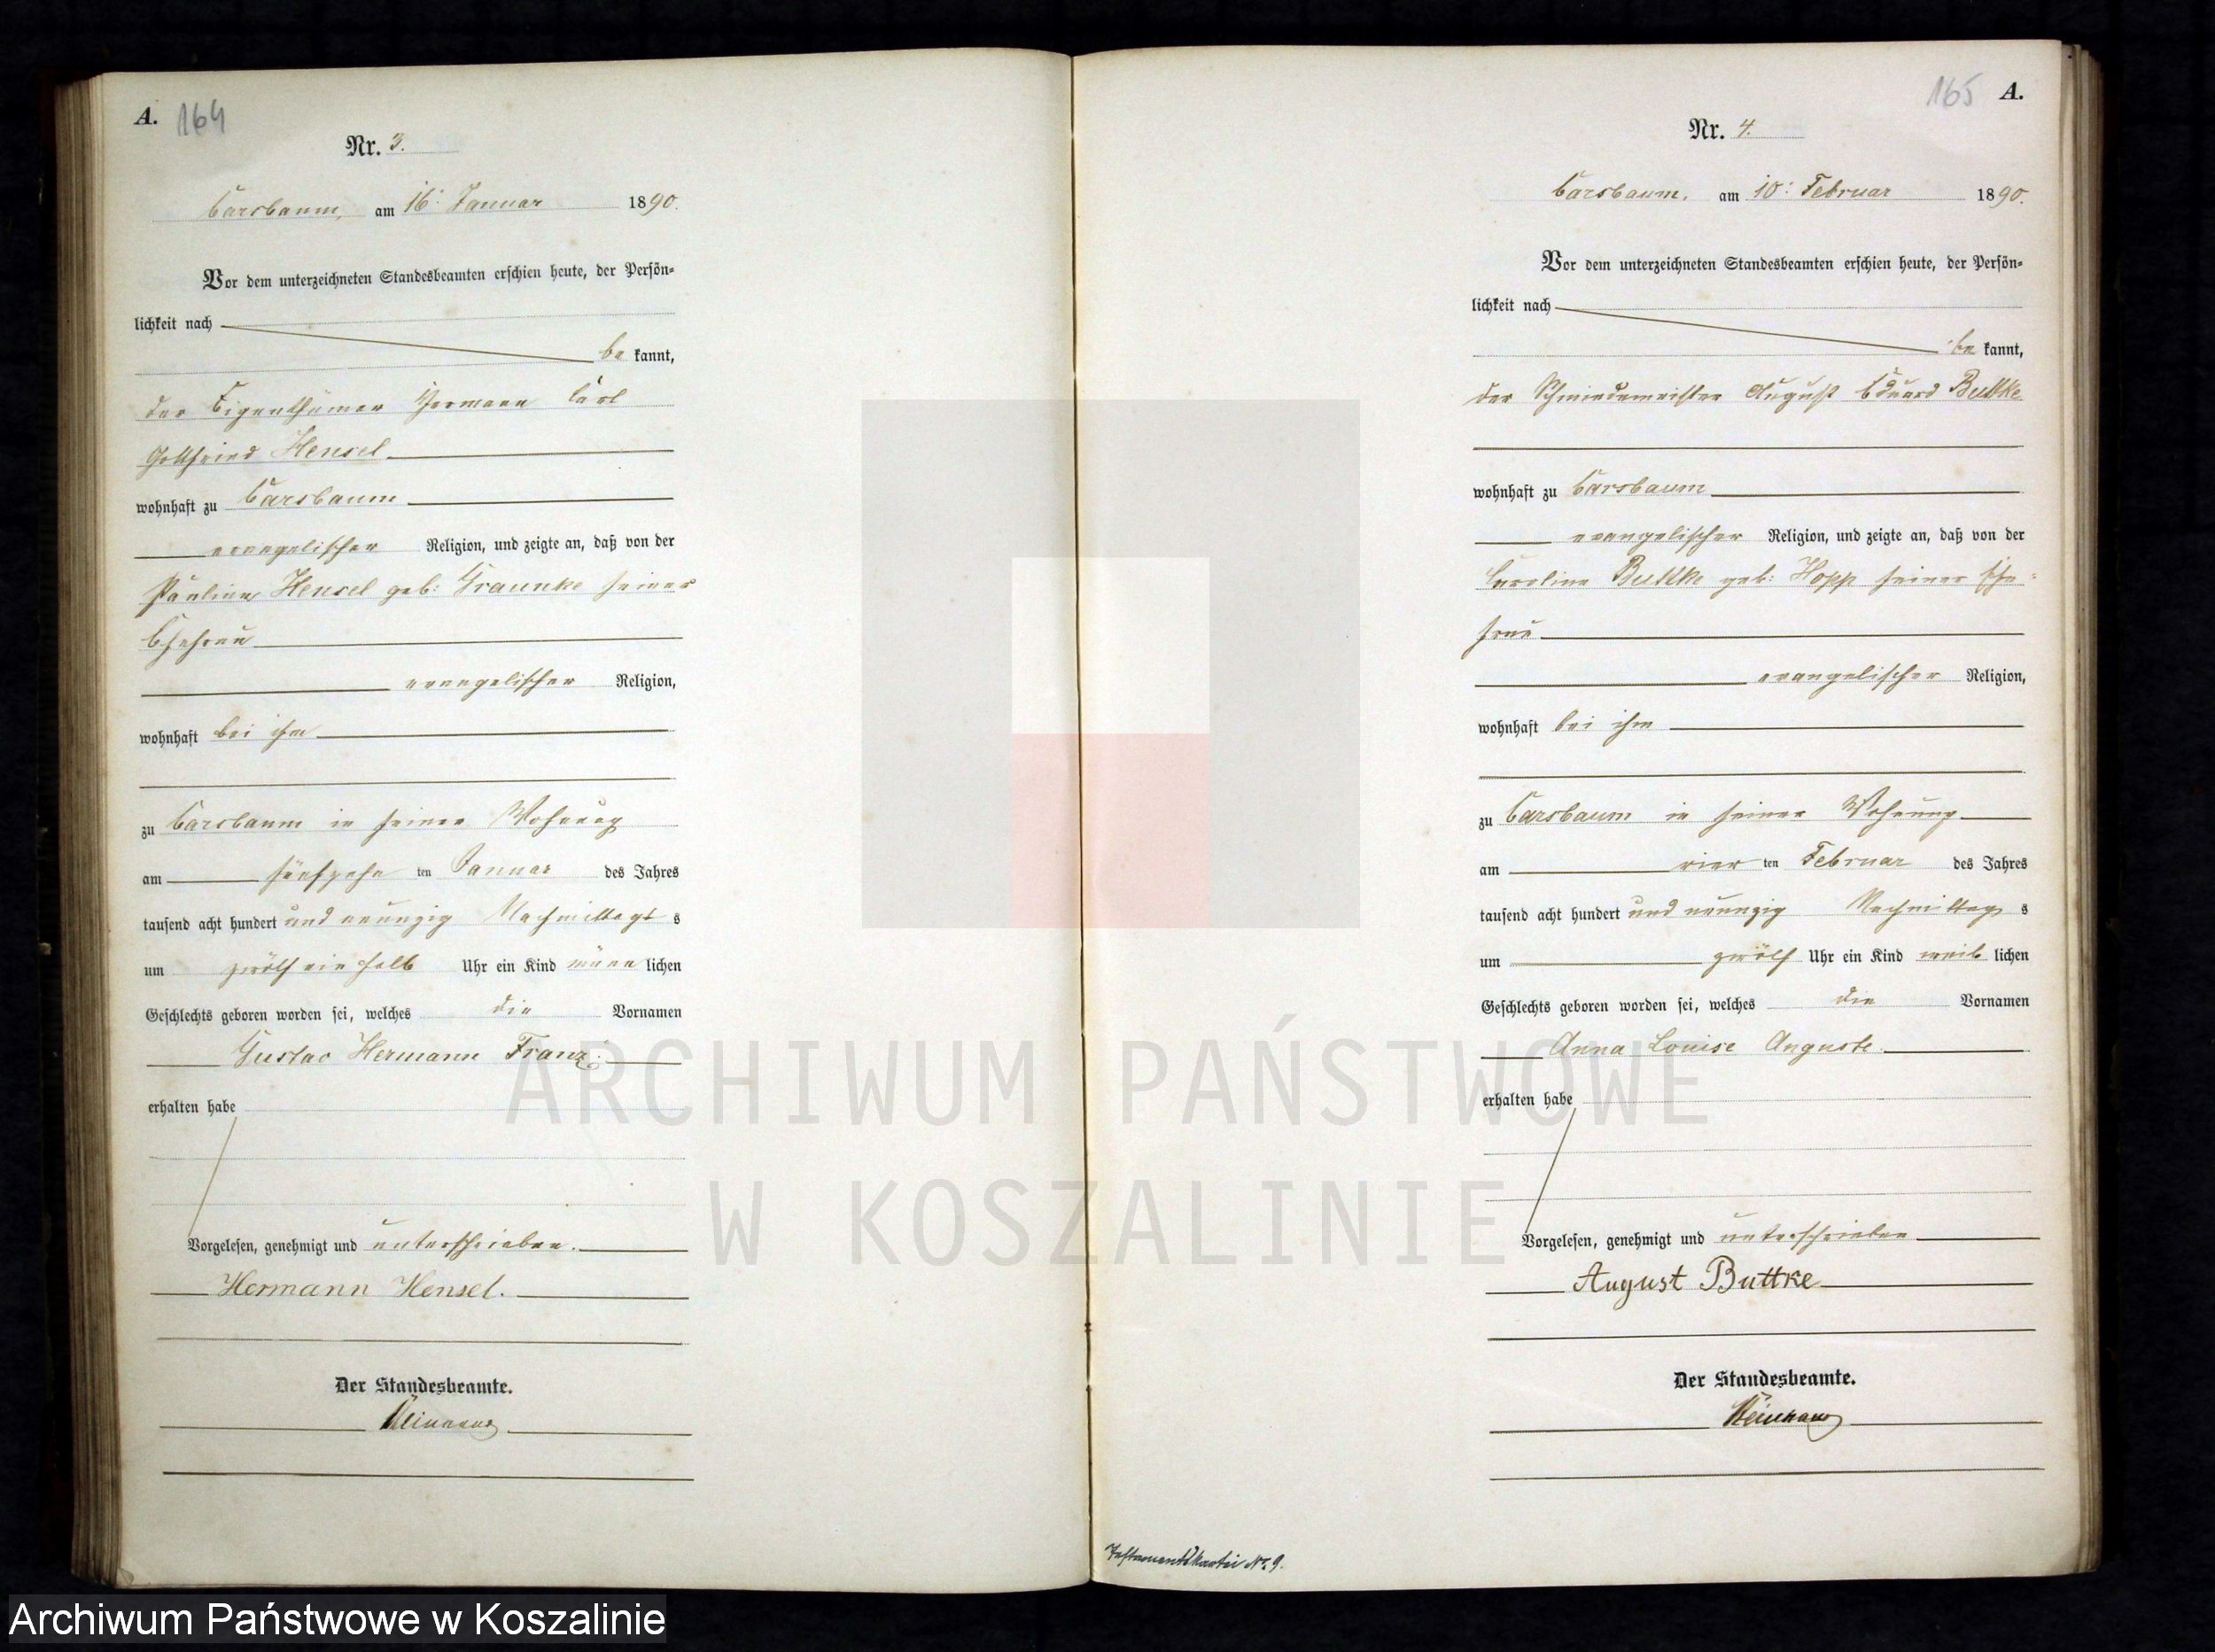 A. 164
Nr. 3.
Carsbaum, am 16: Januar 1890.
Vor dem unterzeichneten Standesbeamten erschien heute, der Persön-
lichkeit nach
be kannt,
der Eigenthümer Hermann Carl
Gottfried Hensel
wohnhaft zu Carsbaum
evangelischer Religion, und zeigte an, daß von der
Pauline Hensel geb: Graunke seiner
Ehefrau
evangelischer Religion,
wohnhaft bei ihm
zu Carsbaum in seiner Wohnung
am fünfzehn ten Januar des Jahres
tausend acht hundert und neunzig Nachmittags s
um zwölf ein halb Uhr ein Kind männ lichen
Geschlechts geboren worden sei, welches die Vornamen
Gustav Hermann Franz
erhalten habe
Vorgelesen, genehmigt und unterschrieben.
Hermann Hensel.
Der Standesbeamte.
165 A.
Nr. 4.
Carsbaum, am 10: Februar 1890.
Vor dem unterzeichneten Standesbeamten erschien heute, der Persön-
lichkeit nach
be kannt,
der Schmiedemeister August Eduard Buttke
wohnhaft zu Carsbaum
evangelischer Religion, und zeigte an, daß von der
Caroline Buttke geb: Hopp seiner Ehe-
frau
evangelischer Religion,
wohnhaft bei ihm
zu Carsbaum in seiner Wohnung
am vier ten Februar des Jahres
tausend acht hundert und neunzig Nachmittag s
um zwölf Uhr ein Kind weib lichen
Geschlechts geboren worden sei, welches die Vornamen
Anna Louise Auguste
erhalten habe
Vorgelesen, genehmigt und unterschrieben
August Buttke
Der Standesbeamte.
Testamentskartei Nr. 9.
ARCHIWUM PAŃSTWOWE
W KOSZALINIE
Archiwum Państwowe w Koszalinie